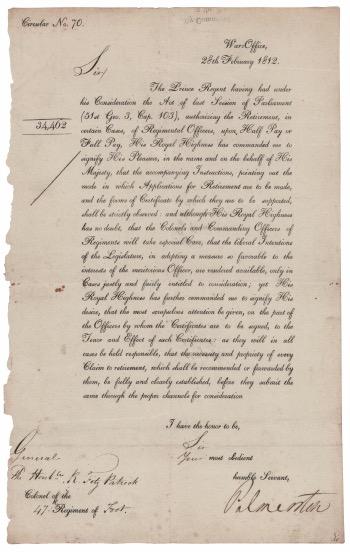 Circular No. 70.
War-Office,
28th February 1812.
Sir,
The Prince Regent having had under
his Consideration the Act of last Session of Parliament
(51st Geo. 3, Cap. 103), authorizing the Retirement, in
certain Cases, of Regimental Officers, upon Half Pay or
Full Pay, His Royal Highness has commanded me to
signify His Pleasure, in the name and on the behalf of His
Majesty, that the accompanying Instructions, pointing out the
mode in which Applications for Retirement are to be made,
and the forms of Certificate by which they are to be supported,
shall be strictly observed: and although His Royal Highness
has no doubt, that the Colonels and Commanding Officers of
Regiments will take especial Care, that the liberal Intentions
of the Legislature, in adopting a measure so favorable to the
interests of the meritorious Officer, are rendered available, only in
Cases justly and fairly entitled to consideration; yet His
Royal Highness has further commanded me to signify His
desire, that the most scrupulous attention be given, on the part
of the Officers by whom the Certificates are to be signed, to the
Tenor and Effect of such Certificates: as they will in all
cases be held responsible, that the necessity and propriety of every
Claim to retirement, which shall be recommended or forwarded by
them, be fully and clearly established, before they submit the
same through the proper channels for consideration
34,462
I have the honor to be,
Sir
Your most obedient
humble Servant,
Palmerston
General
The Honble. R. Fitz Patrick
Colonel of the
47 Regiment of Foot.